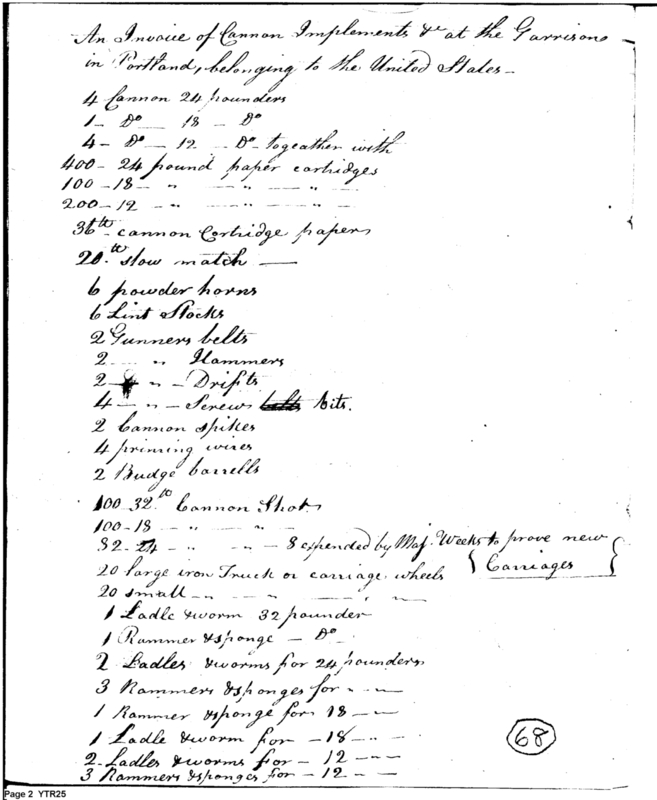 An Invoice of Cannon Implements &c at the Garrison
in Portland, belonging to the United States -
4 Cannon 24 pounders
1 - Do - 18 - Do
4 - Do - 12 - Do - togeather with
400 - 24 pound paper cartridges
100 - 18 - " - " - " -
200 - 12 - " - " - " -
36lb cannon Cortridge papers
20lb slow match -
6 powder horns
6 Lint Stocks
2 Gunners belts
2 - " Hammers
2 - " - Drifts
4 - " - Screws belts bits.
2 Cannon spikes
4 priming wires
2 Budge barrells
100 32lb Cannon Shot
100 - 18 - " -
32 - 24 - " - " - 8 expended by Maj. Weeks to prove new
20 large iron Truck or carriage wheels { Carriages }
20 small - " - " - " -
1 Ladle & worm 32 pounder
1 Rammer & sponge - Do -
2 Ladles & worms for 24 pounders
3 Rammers & sponges for - " -
1 Rammer & sponge for 18 - " -
1 Ladle & worm for - 18 - " -
2 - Ladles & worms for - 12 - " -
3 Rammers & sponges for - 12 - " -
68
Page 2 YTR25